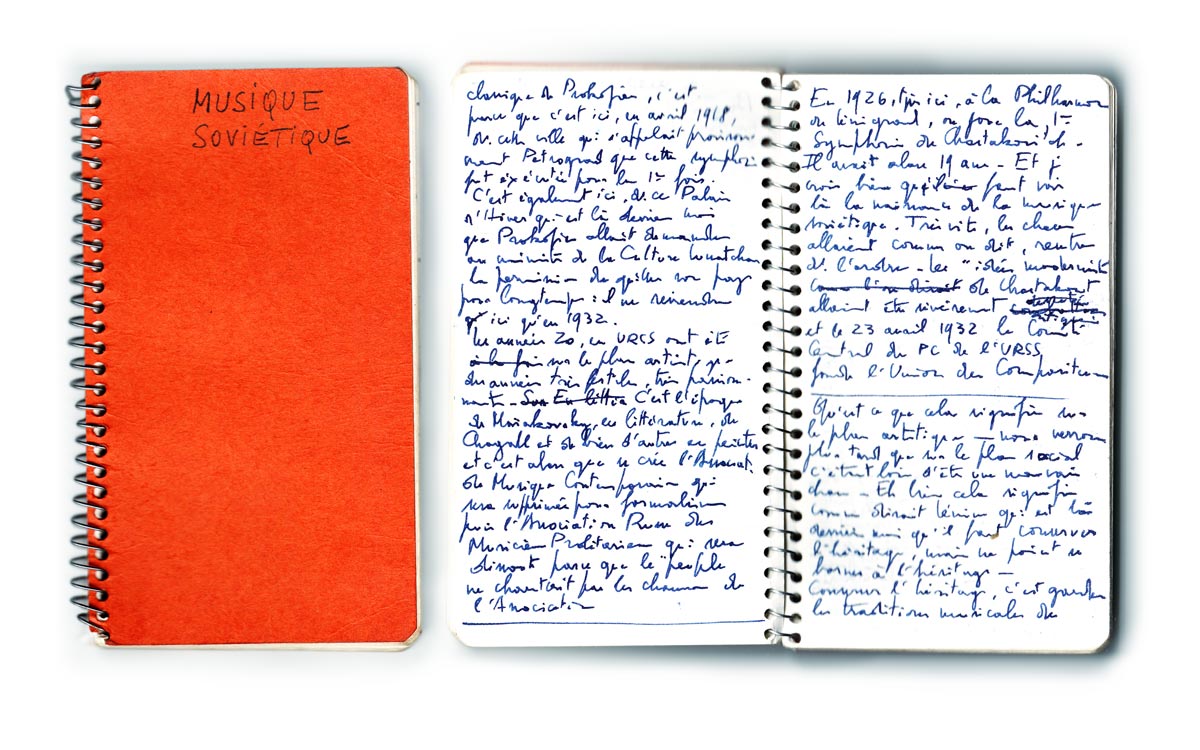 MUSIQUE
SOVIÉTIQUE
classique de Prokofiev, c'est
parce que c'est ici, en avril 1918,
ds cette ville qui s'appelait provisoire-
ment Petrograd que cette symphonie
fut exécutée pour la 1re fois.
C'est également ici, ds ce Palais
d'Hiver qui est là derrière moi
que Prokofiev allait demander
au ministre de la Culture
la permission de quitter son pays
pour longtemps : il ne reviendra
qu'ici qu'en 1932.
Les années 20, en URSS ont été
à la fois sur le plan artistique
des années très fertiles, très passion-
nantes - C'est l'époque
de Maïakovsky, en littérature, de
Chagall et de bien d'autres en peinture
et c'est alors que se crée l'Associat.
de Musique Contemporaine qui
sera supprimée pour formalisme
puis l'Association Russe des
Musiciens Prolétariens qui sera
dissoute parce que le "peuple
ne chantait pas les chansons de
l'Association
En 1926, tjrs ici, à la Philharmonie
de Leningrad, on joue la 1re
Symphonie de Chostakovitch -
Il avait alors 19 ans - Et je
crois bien qu'il faut voir
là la naissance de la musique
soviétique. Très vite, les choses
allaient comme on dit, rentrer
ds l'ordre - les "idées modernistes
comme l'on dirait de Chostakovitch
allaient être sévèrement critiquées
et le 23 avril 1932 le Comité
Central du PC de l'URSS
fonde l'Union des Compositeurs
Qu'est ce que cela signifie sur
le plan artistique - nous verrons
plus tard que sur le plan social
c'était loin d'être une mauvaise
chose - Eh bien cela signifie
comme dirait Lénine qui est là
derrière moi qu'il faut conserver
l'héritage, mais ne point se
borner à l'héritage -
Conserver l'héritage, c'est garder
les traditions musicales de